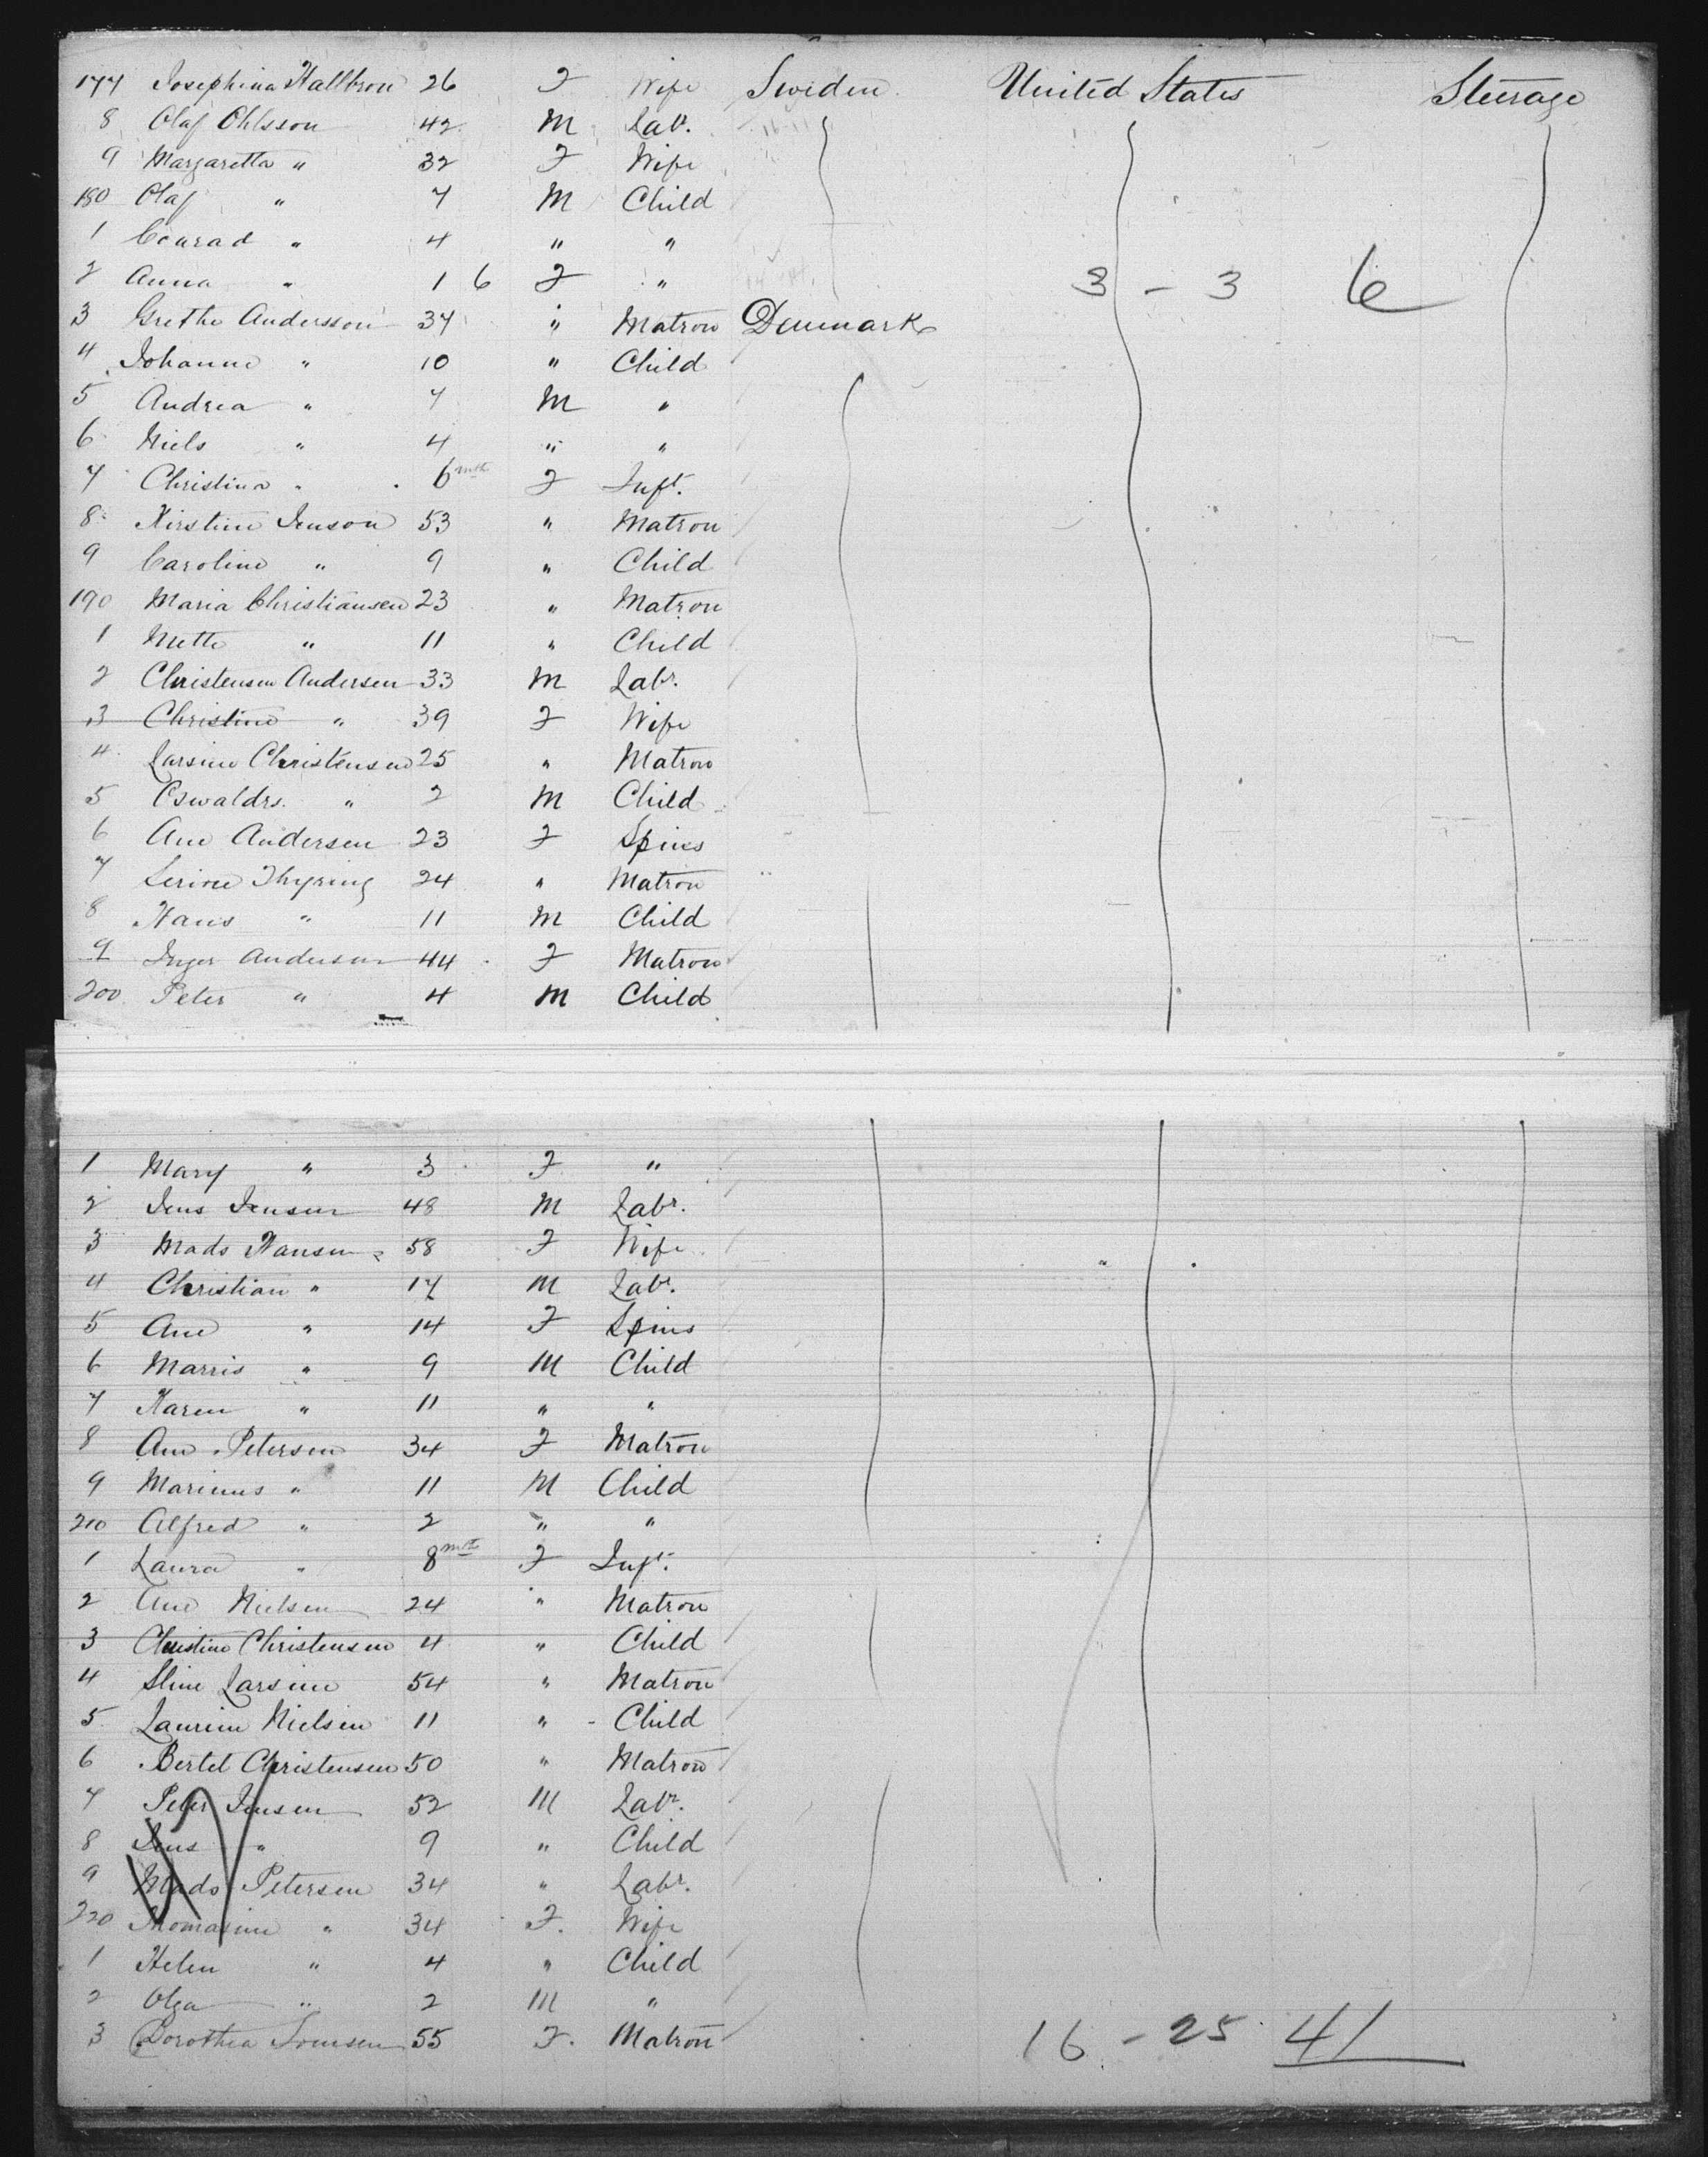 177 Josephina Hallbron 26 F Wife Sweden United States Steerage
8 Olaf Ohlsson 42 M Labr.
9 Margaretta " 32 F Wife
180 Olaf " 7 M Child
1 Conrad " 4 " "
2 Anna " 1 6 F " 3 - 3 6
3 Grethe Andersson 34 " Matron Denmark
4 Johanne " 10 " Child
5 Andrea " 7 M "
6 Niels " 4 " "
7 Christina " 6 mth F Inft.
8 Kirstine Jenson 53 " Matron
9 Caroline " 9 " Child
190 Maria Christiansen 23 " Matron
1 Mette " 11 " Child
2 Christensen Andersen 33 M Labr.
3 Christine " 39 F Wife
4 Larsine Christensen 25 " Matron
5 Oswaldrs. " 2 M Child
6 Ane Andersen 23 F Spins
7 Thyring 24 " Matron
8 Hans " 11 M Child
9 Inger Andersen 44 F Matron
200 Peter " 4 M Child
1 Mary " 3 F "
2 Jens Jensen 48 M Labr.
3 Mads Hansen 58 F Wife
4 Christian " 17 M Labr.
5 Ane " 14 F Spins
6 Marris " 9 M Child
7 Karen " 11 " "
8 Ane Petersen 34 F Matron
9 Marinus " 11 M Child
210 Alfred " 2 " "
1 Laura " 8 mth F Inft.
2 Ane Nielsen 24 " Matron
3 Christine Christensen 4 " Child
4 Stine Larsine 54 " Matron
5 Laurine Nielsen 11 " Child
6 Bertel Christensen 50 " Matron
7 Peter Jensen 52 M Labr.
8 Jens " 9 " Child
9 Mads Petersen 34 " Labr.
220 Thomasine " 34 F. Wife
1 Helen " 4 " Child
2 Olga " 2 M "
3 Dorothea 55 F. Matron 16 - 25 41